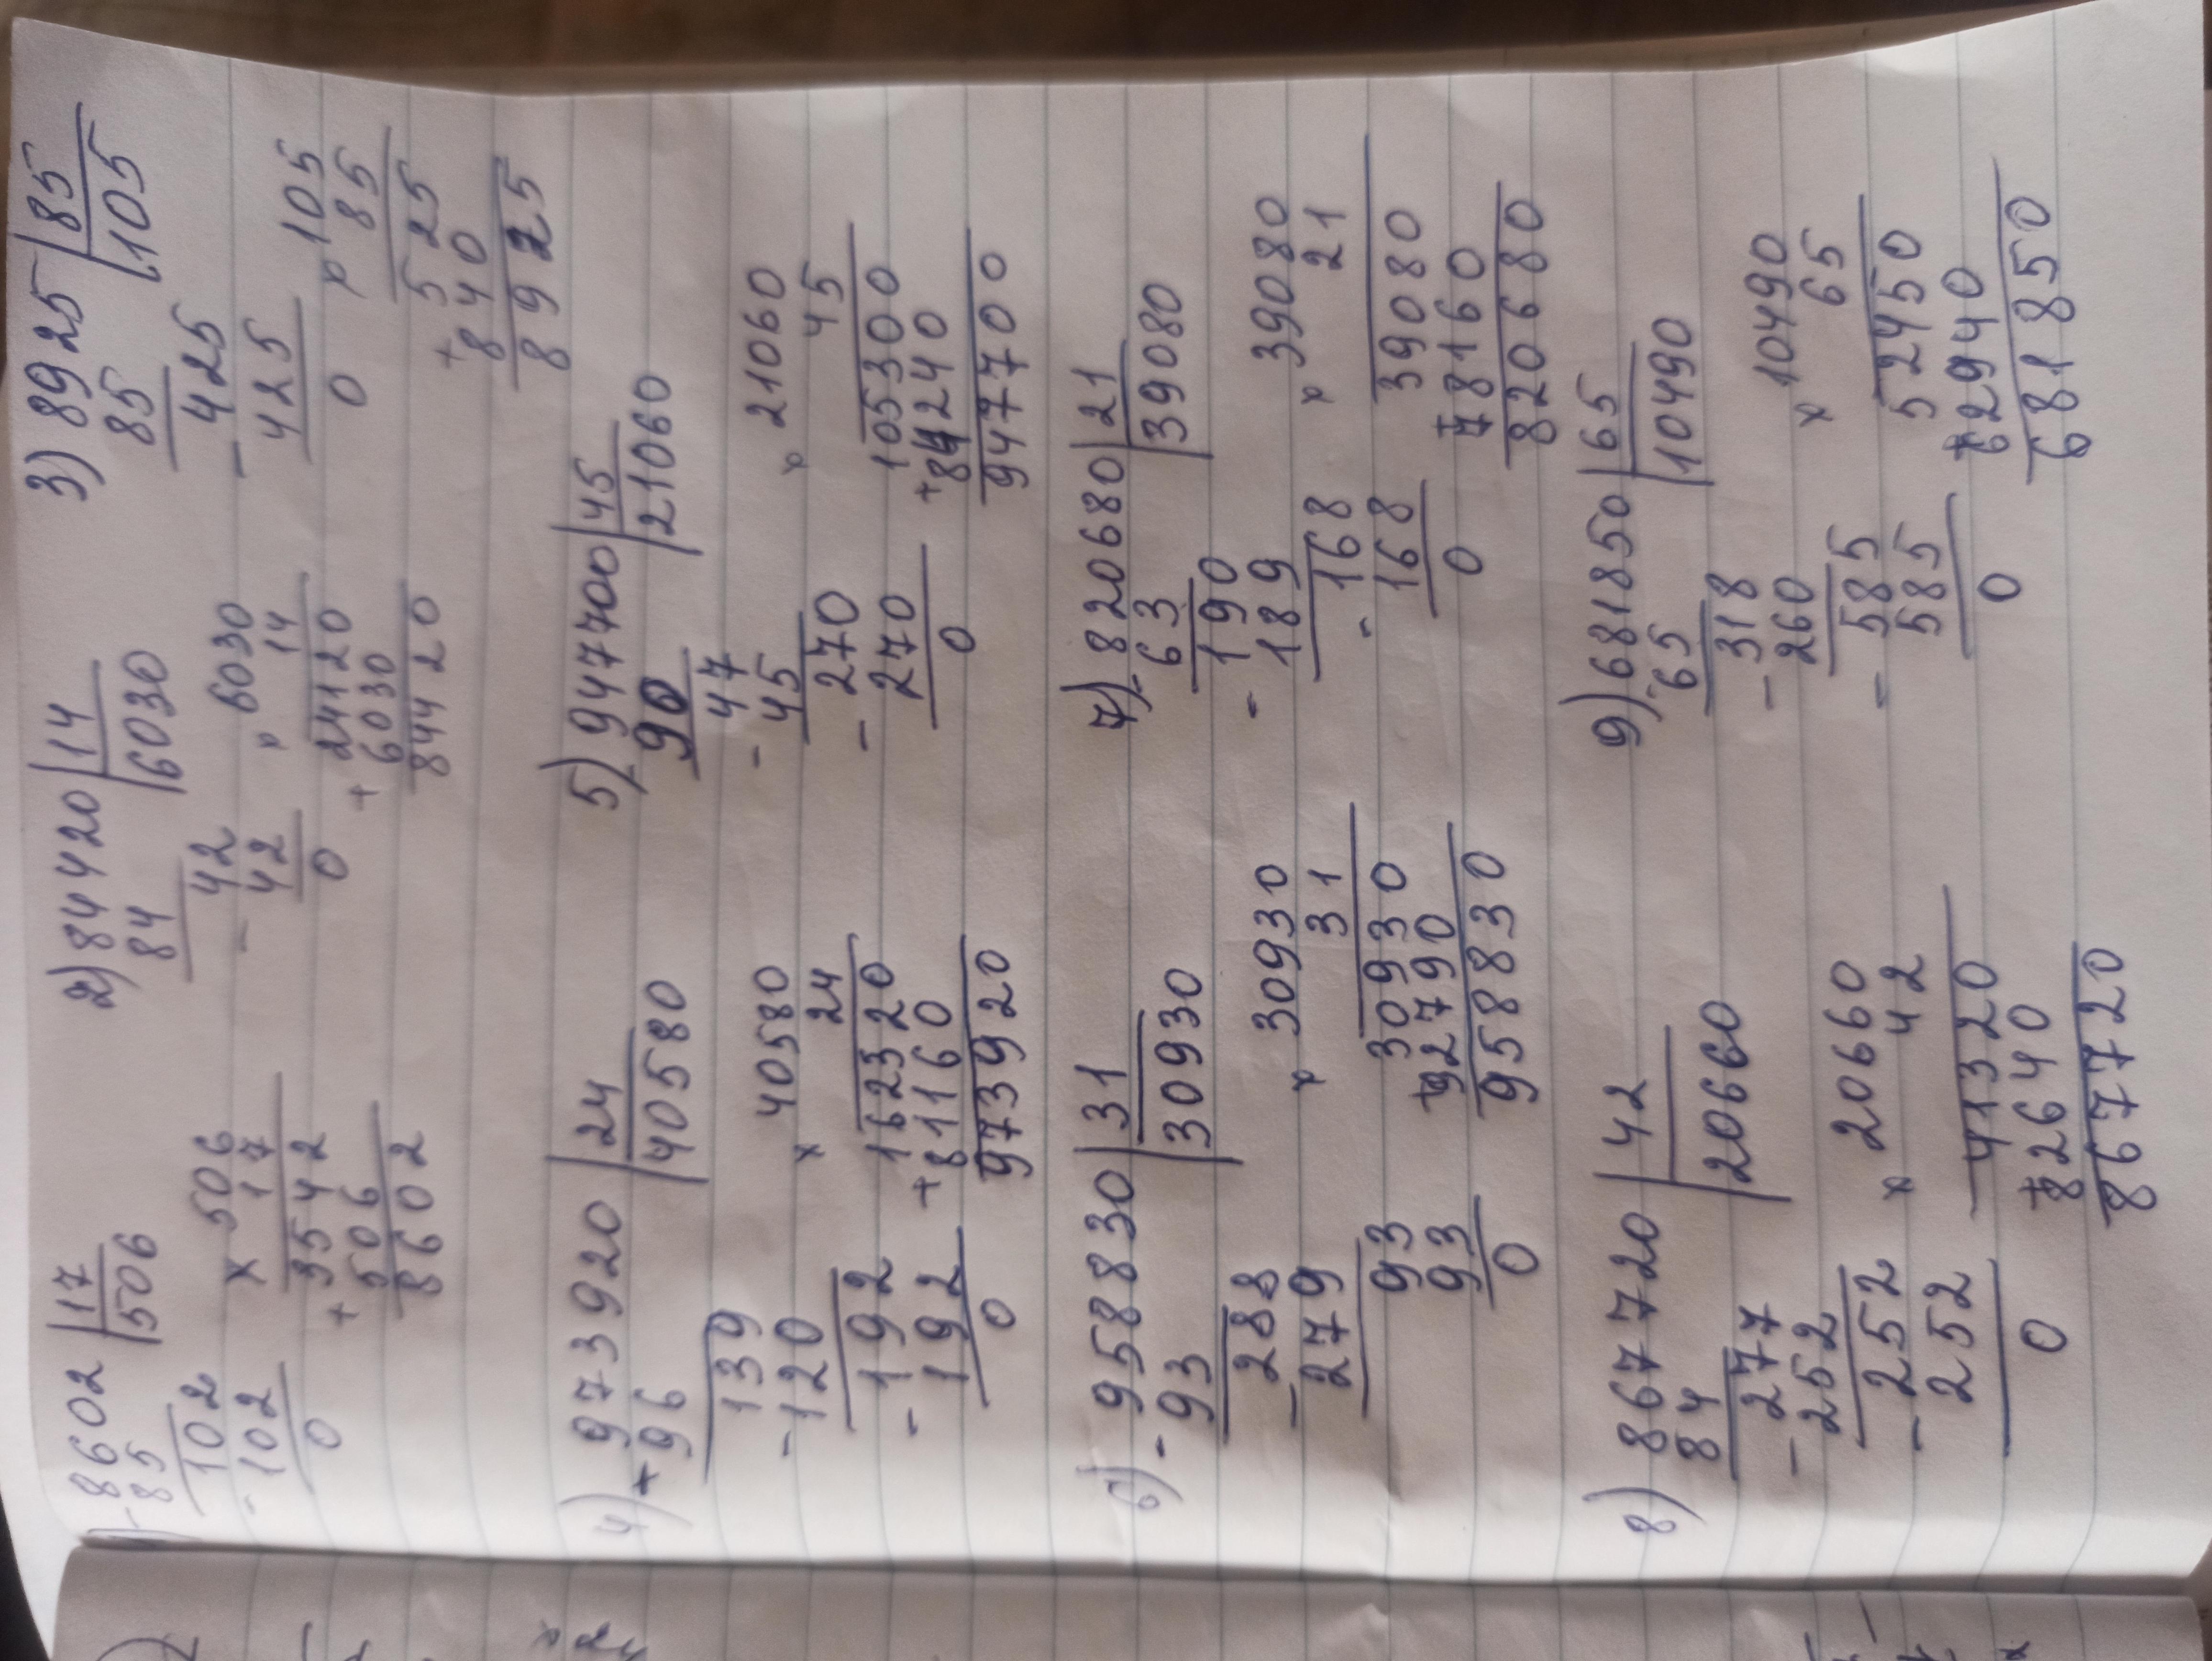 1) 8602 | 17
- 85 | 506
102
- 102
0
× 506
17
3542
+ 506
8602
2) 84420 | 14
84 | 6030
- 42
42
0
× 6030
14
24120
+ 6030
84420
3) 8925 | 85
85 | 105
- 425
425
0
× 105
85
525
+ 840
8925
4) 973920 | 24
- 96 | 40580
139
- 120
192
- 192
0
× 40580
24
162320
+ 81160
973920
5) 947700 | 45
- 90 | 21060
47
- 45
270
- 270
0
× 21060
45
105300
+ 84240
947700
6) - 958830 | 31
93 | 30930
288
- 279
93
93
0
× 30930
31
30930
+ 92790
958830
7) - 820680 | 21
63 | 39080
190
- 189
168
- 168
0
× 39080
21
39080
+ 78160
820680
8) 867720 | 42
84 | 20660
277
- 252
252
- 252
0
× 20660
42
41320
+ 82640
867720
9) - 681850 | 65
65 | 10490
318
- 260
585
- 585
0
× 10490
65
52450
+ 62940
681850